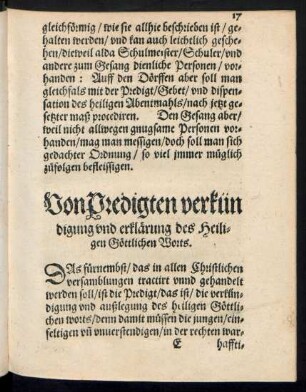 17
gleichförmig / wie sie allhie beschrieben ist / ge-
halten werden / vnd kan auch leichtlich gesche-
hen / dieweil alda Schulmeister / Schuler / vnd
andere zum Gesang dienliche Personen / vor-
handen : Auff den Dörffen aber soll man
gleichfals mit der Predigt / Gebet / vnd dispen-
sation des heiligen Abentmahls / nach jetzt ge-
setzter maß procediren. Den Gesang aber /
weil nicht allwegen gnugsame Personen vor-
handen / mag man messigen / doch soll man sich
gedachter Ordnung / so viel jmmer müglich
zůfolgen befleissigen.
Von Predigten verkün
digung vnd erklärung des Heili-
gen Göttlichen Worts.
DAs fürnembst / das in allen Christlichen
versamblungen tractirt vnnd gehandelt
werden soll / ist die Predigt / das ist / die verkün-
digung vnd außlegung des heiligen Göttli-
chen worts / denn damit müssen die jungen / ein-
feltigen vñ vnuerstendigen / in der rechten war-
E haffti-